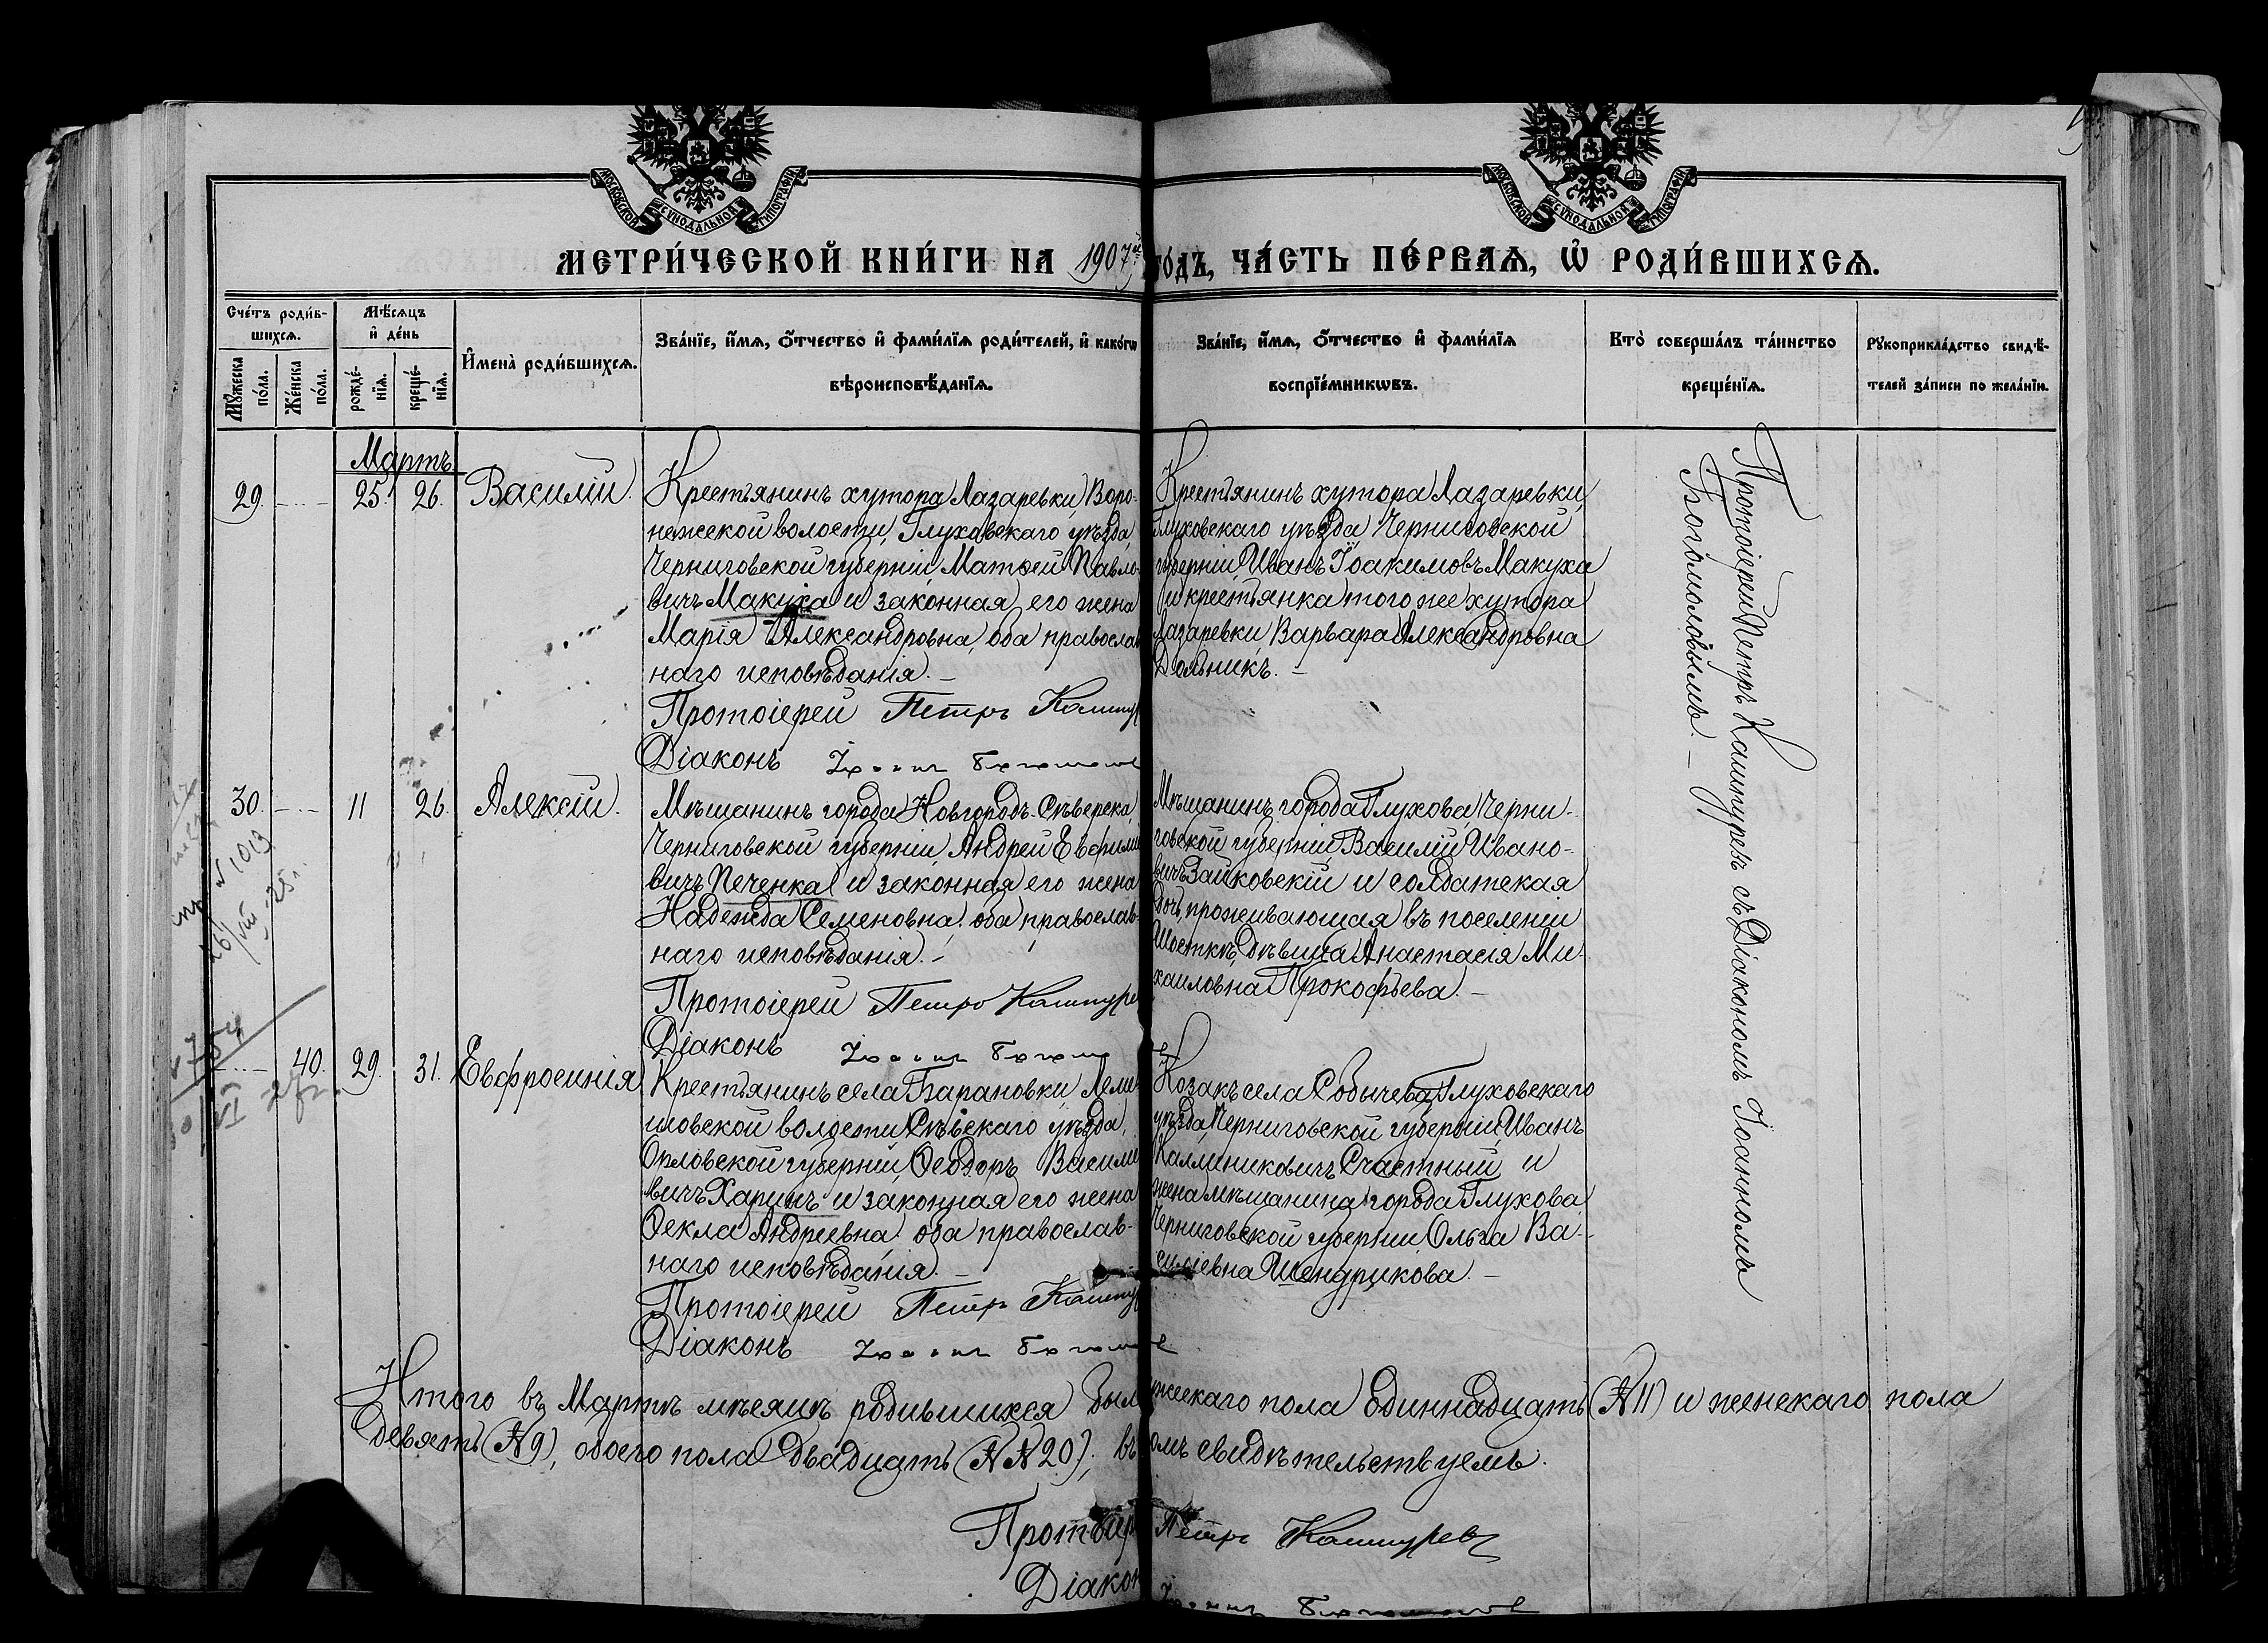 МОСКОВСКОЙ СѴНОДАЛЬНОЙ ТИПОГРАФІИ
МОСКОВСКОЙ СѴНОДАЛЬНОЙ ТИПОГРАФІИ
МЕТРИ́ЧЕСКОЙ КНИ́ГИ НА 1907й го́дъ, ЧА́СТЬ ПЕ́РВАѦ, Ѡ҆ РОДИ́ВШИХСѦ.
Сче́тъ роди́в-
шихсѧ.
Мꙋ́жеска
по́ла.
Же́нска
по́ла.
Мѣ́сѧцъ
и҆ де́нь
рожде́-
нїѧ.
креще́-
нїѧ.
И҆мена̀ роди́вшихсѧ.
Зва́нїе, и҆́мѧ, ѻ҆́тчество и҆ фами́лїѧ роди́телей, и҆ како́гѡ
вѣроисповѣ́данїѧ.
Зва́нїе, и҆́мѧ, ѻ҆́тчество и҆ фами́лїѧ
воспрїе́мникѡвъ.
Кто̀ соверша́лъ та́инство
креще́нїѧ.
Рꙋкоприкла́дство свидѣ́-
телей за́писи по жела́нїю.
Мартъ
29. 25. 26. Василій.
Крестьянинъ хутора Лазаревки, Воро-
нежской волости, Глуховскаго уѣзда,
Черниговской губерніи, Матѳей Павло-
вичъ Макуха и законная его жена
Марія Александровна, оба православ
наго исповѣданія. –
Протоіерей Петръ Кашпур
Діаконъ Іоаннъ Богомолов
Крестьянинъ хутора Лазаревки,
Глуховскаго уѣзда Черниговской
губерніи Иванъ Іоакимовъ Макуха
и крестьянка того же хутора
Лазаревки Варвара Александровна
Дольникъ. –
Протоіерей Петръ Кашпуревъ съ Діакономъ Іоанномъ
Богомоловымъ. –
30. 11 26. Алексій.
Мѣщанинъ города Новгородъ-Сѣверска,
Черниговской губерніи, Андрей Евфимі
вичъ Печенка и законная его жена
Надежда Семеновна, оба православ-
наго исповѣданія. –
Протоіерей Петръ Кашпуре
Діаконъ Іоаннъ Богомо
Мѣщанинъ города Глухова, Черни-
говской губерніи, Василій Ивано-
вичъ Зайковскій и солдатская
дочь, проживающая въ поселеніи
Шосткѣ, дѣвица Анастасія Ми-
хаиловна Прокофьева. –
№ 1019
40. 29. 31. Евфросинія
Крестьянинъ села Барановки, Леме
шовской волости Сѣвскаго уѣзда,
Орловской губерніи, Ѳеодоръ Василі
вичъ Харинъ и законная его жена
Ѳекла Андреевна, оба православ-
наго исповѣданія. –
Протоіерей Петръ Кашпу
Діаконъ Іоаннъ Богомолов
Козакъ села Собычева, Глуховскаго
уѣзда, Черниговской губерніи, Иванъ
Каллиниковичъ Счастный и
жена мѣщанина города Глухова,
Черниговской губерніи, Ольга Ва-
сильевна Шендрикова. –
Итого въ Мартѣ мѣсяцѣ родившихся было мужескаго пола одиннадцать (№11) и женскаго пола
девять (№9), обоего пола двадцать (№№20); въ томъ свидѣтельствуемъ.
Протоіер Петръ Кашпуревъ
Діакон Іоаннъ Богомолов